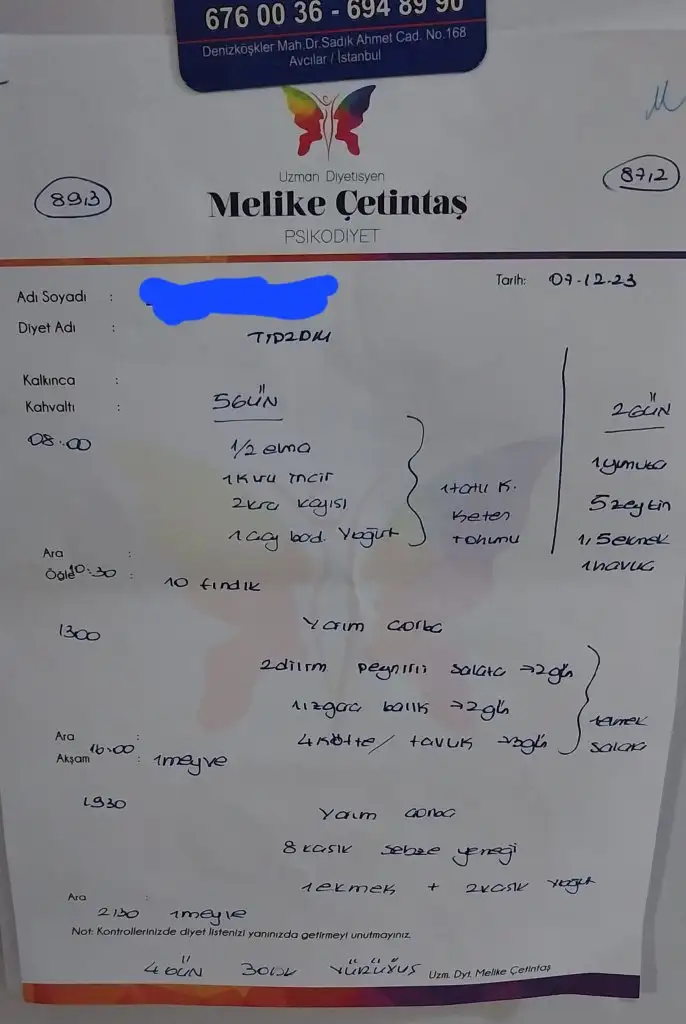 676 00 36 - 694 89 90
Denizköşkler Mah.Dr.Sadık Ahmet Cad. No.168
Avcılar / İstanbul
Uzman Diyetisyen
89,3
87,2
Melike Çetintaş
PSİKODİYET
Tarih: 07.12.23
Adı Soyadı :
Diyet Adı :
Kalkınca :
Kahvaltı :
5 GÜN
2 GÜN
08:00
1/2 elma
1 kuru incir
2 kuru kayısı
1 çay bod. Yoğurt
1 tatlı k.
Keten
tohumu
1 yumurta
5 zeytin
1,5 ekmek
1 havuç
Ara :
Öğle 10:30 :
10 fındık
1300
Yarım çorba
2 dilim peynirli salata → 2 gün
1 ızgara balık → 2 gün
4 köfte / tavuk → 3 gün
1 ekmek
salata
Ara :
Akşam 16:00 : 1 meyve
1930
Yarım çorba
8 kaşık sebze yemeği
1 ekmek + 2 kaşık yoğurt
Ara :
2130 1 meyve
Not: Kontrollerinizde diyet listenizi yanınızda getirmeyi unutmayınız.
4 GÜN 30 dk YÜRÜYÜŞ
Uzm. Dyt. Melike Çetintaş